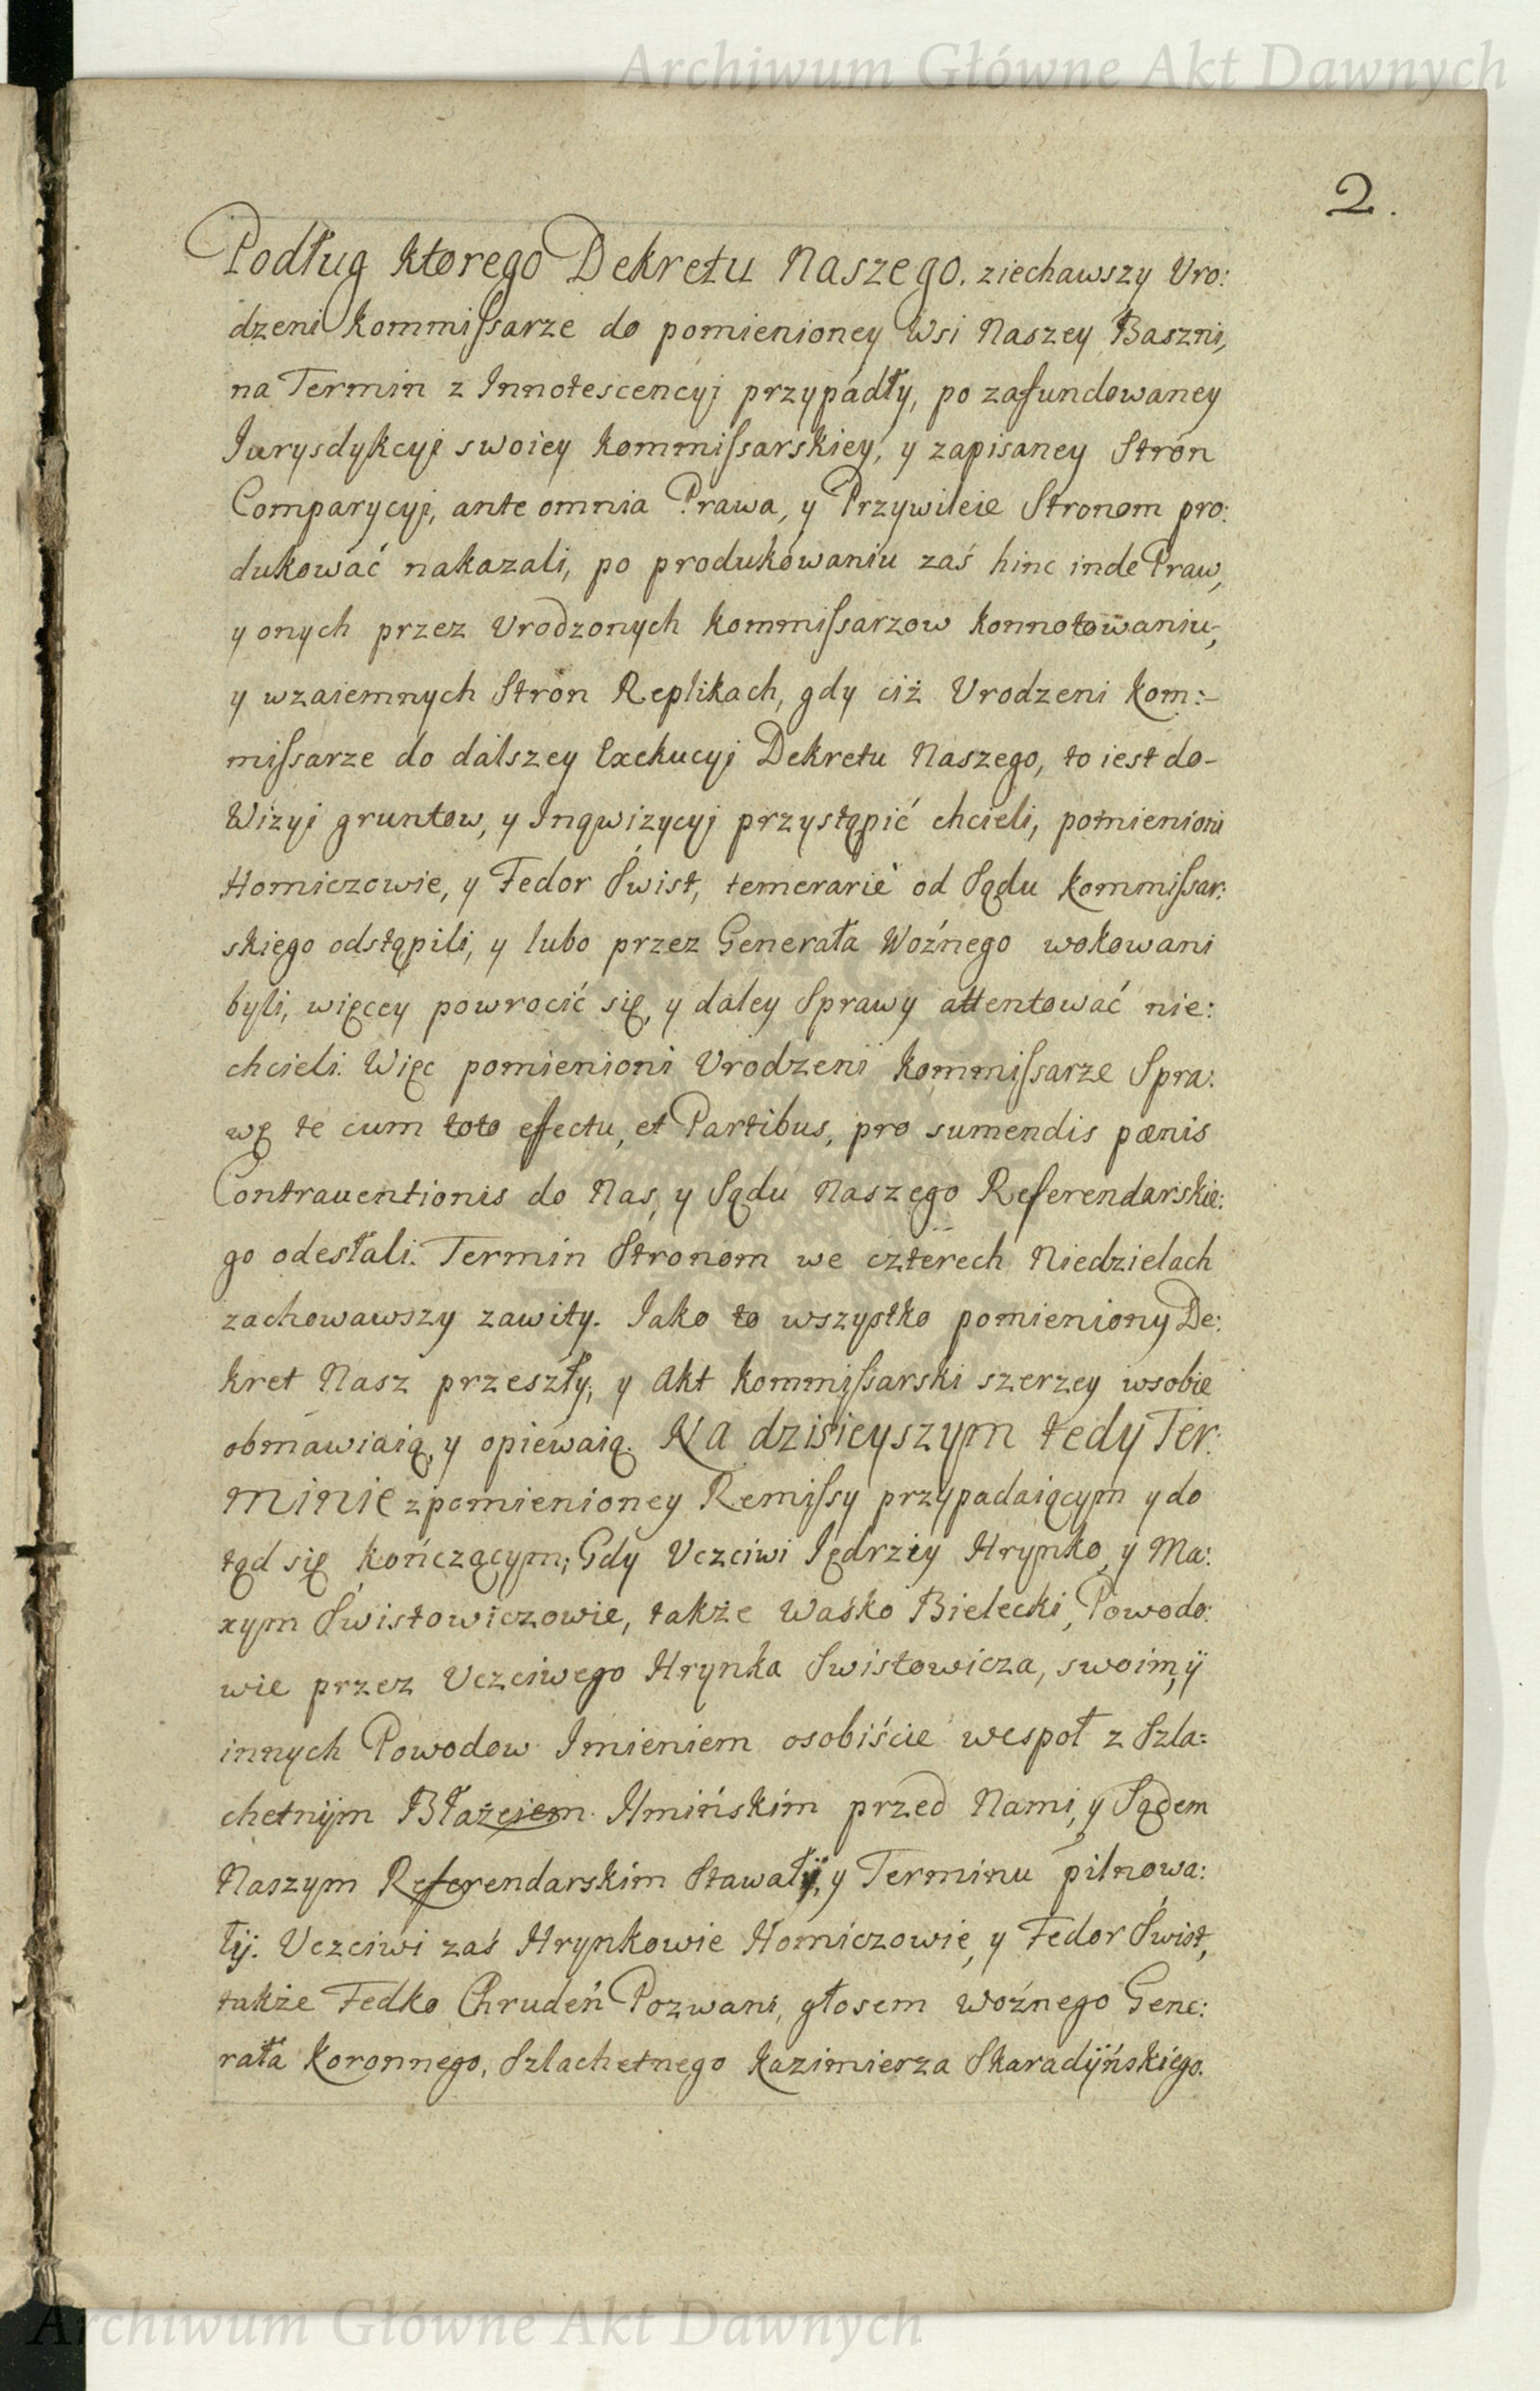 Archiwum Główne Akt Dawnych
2.
Podług ktorego Dekretu Naszego. ziechawszy Vro:
dzeni Kommissarze do pomienioney Wsi Naszey Baszni,
na Termin z Innotescencyj przypadły, po zafundowaney
Iurysdykcyj swoiey Kommissarskiey, y zapisaney Stron
Comparycyj, ante omnia Prawa, y Przywileie Stronom pro:
dukować nakazali, po produkowaniu zaś hinc inde Praw,
y onych przez Vrodzonych Kommissarzow konnotowaniu,
y wzaiemnych Stron Replikach, gdy ciż Vrodzeni Kom:-
missarze do dalszey Exekucyj Dekretu Naszego, to iest do-
Wizyj gruntow, y Inqwizycyj przystąpić chcieli, pomienioni
Homiczowie, y Fedor Swist, temerarie od Sądu Kommissar:
skiego odstąpili, y lubo przez Generała Woźnego wokowani
byli, więcey powrocić się, y daley Sprawy attentować nie:
chcieli. Więc pomienioni Vrodzeni Kommissarze Spra:
wę te cum toto efectu, et Partibus, pro sumendis pœnis
Contrauentionis do Nas, y Sądu Naszego Referendarskie:
go odesłali. Termin Stronom we czterech Niedzielach
zachowawszy zawity. Iako to wszystko pomieniony De:
kret Nasz przeszły, y Akt Kommissarski szerzey wsobie
obmawiaią, y opiewaią. Na dzisieyszym tedy Ter:
minie z pomienioney Remissy przypadaiącym y do
tąd się kończącym; Gdy Vczciwi Iędrzey Hrynko, y Ma:
xym Swistowiczowie, także Waśko Bielecki, Powodo:
wie przez Vczciwego Hrynka Swistowicza, swoim, ÿ
innych Powodow Imieniem osobiście wespoł z Szla:
chetnÿm Błażeiem Hmińskim przed Nami, y Sądem
Naszym Referendarskim Stawałÿ, y Terminu pilnowa:
łÿ. Vczciwi zaś Hrynkowie Homiczowie, y Fedor Swist,
także Fedko Chrudeń Pozwani, głosem Woźnego Gene:
rała Koronnego, Szlachetnego Kazimierza Skaradÿńskiego.
Archiwum Główne Akt Dawnych